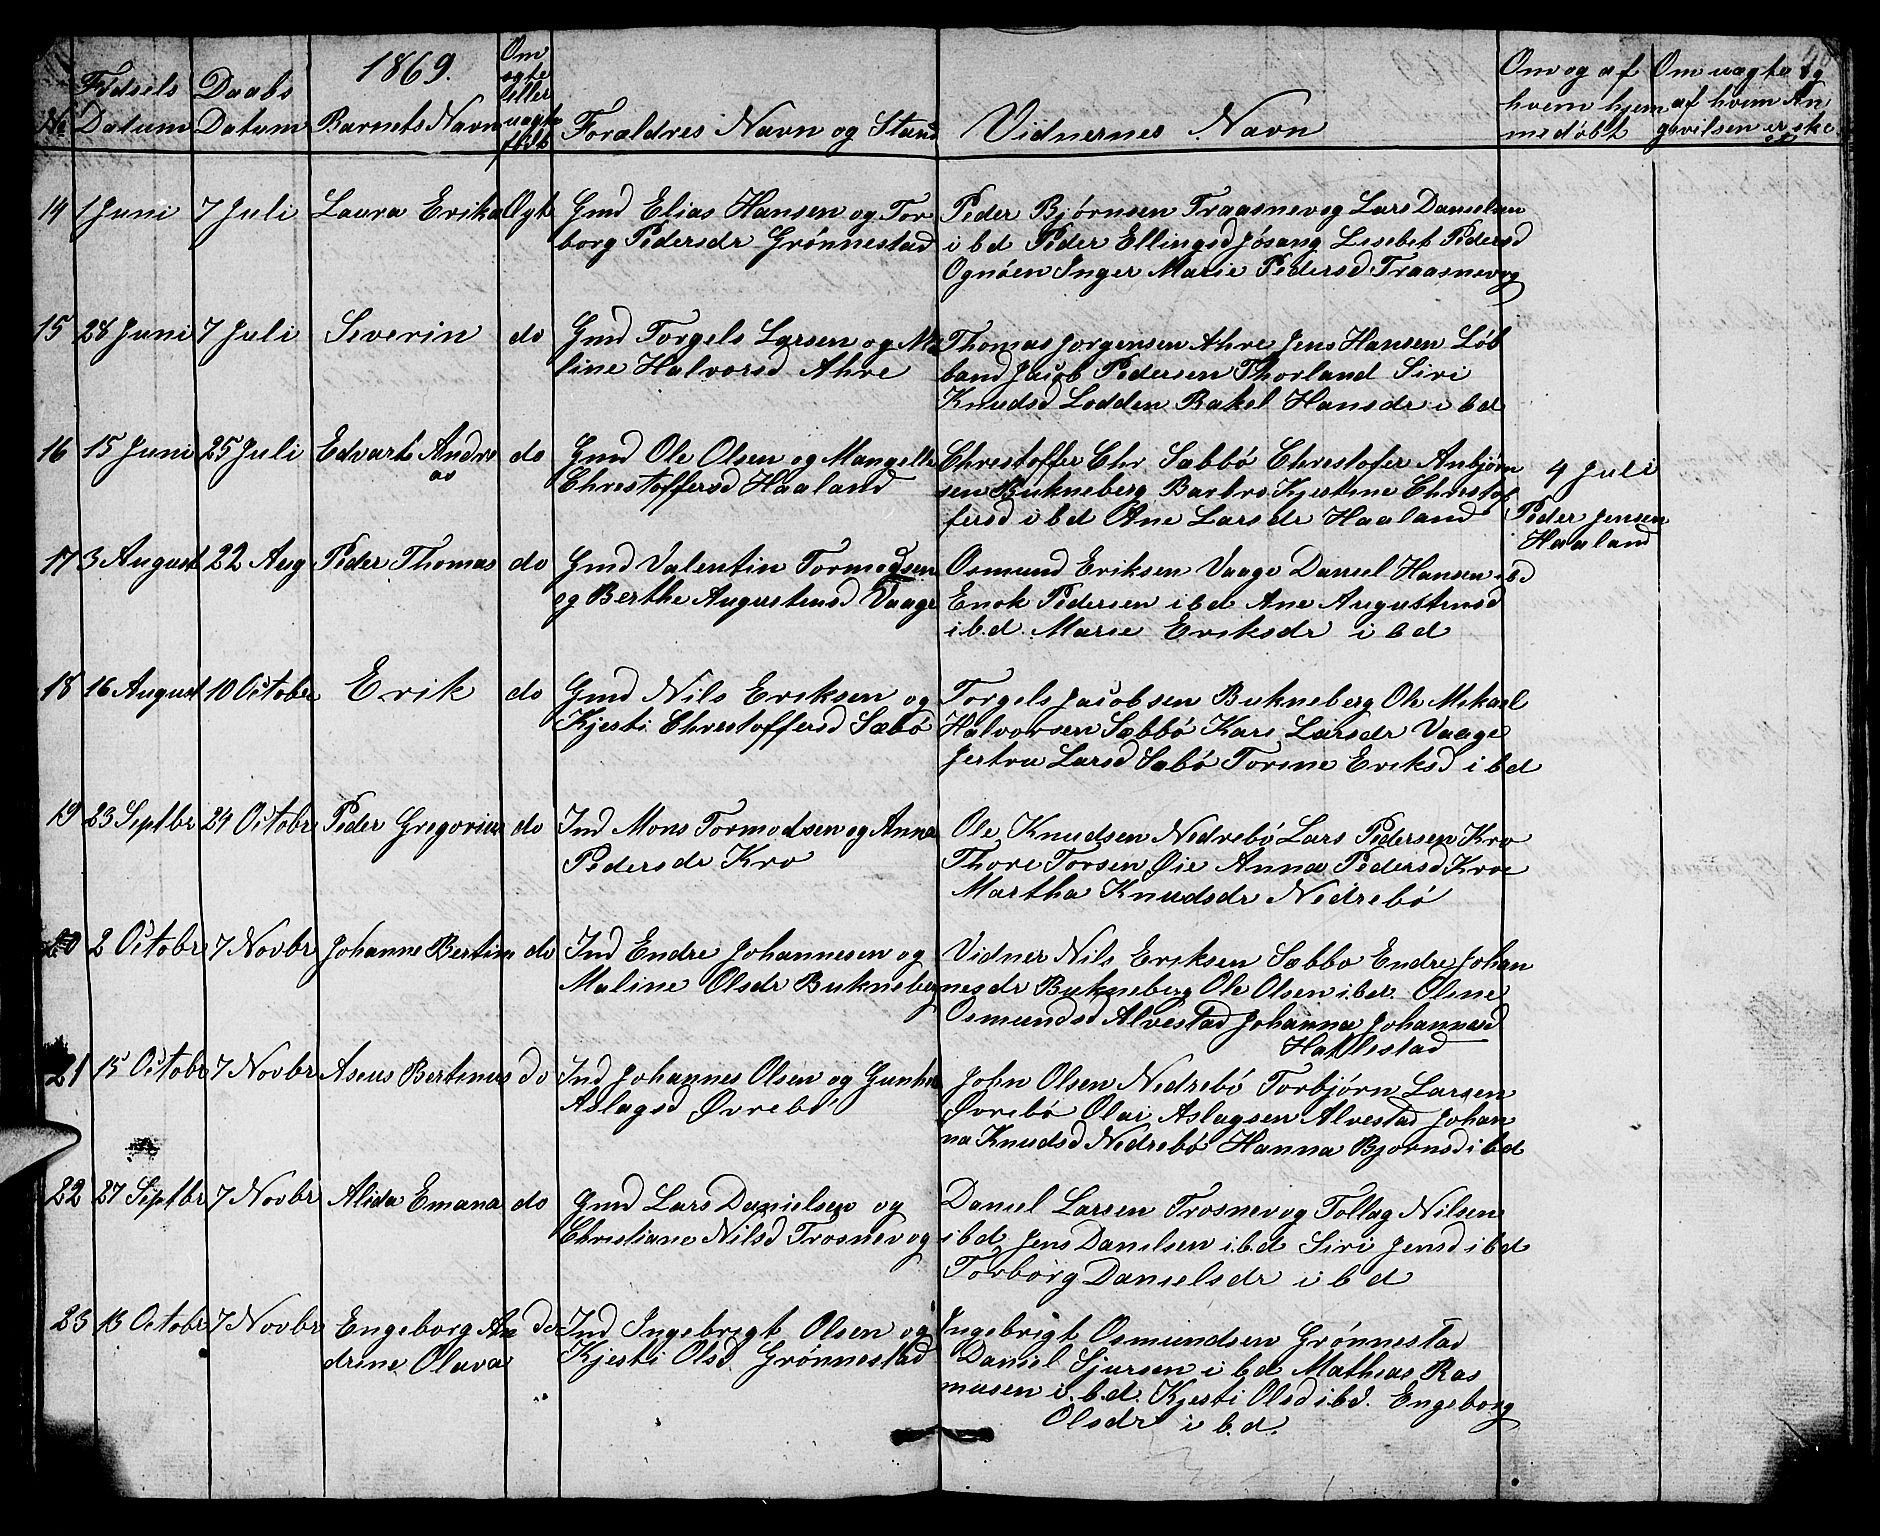 1869.
No Fødsels Datum
Daabs Datum
Barnets Navn
Om ægte eller uægte født
Forældres Navn og Stand
Vidnernes Navn
Om og af hvem hjemmedøbt
Om uægte og af hvem Angivelsen er skeet
14 1 Juni 7 Juli Laura Erika Ægt Gmd Elias Hansen og Tor Peder Bjørnsen Traasnevog Lars Danielsen
borg Pedersdr Grønnestad i bd Peder Ellingsd Jøsang Lesebet Pedersd
Ognøen Inger Marie Pedersd Traasnevog
15 28 Juni 7 Juli Severin do Gmd Torgels Larsen og Ma Thomas Jorgensen Ahre Jens Hansen Løb
line Halvorsd Ahre band Jacob Pedersen Thorland Siri
Knudsd Lodden Rakel Hansdr i bd
16 15 Juni 25 Juli Edvart Andre do Gmd Ole Olsen og Mangelle Chrestoffer Chr Sæbbö Chrestofer Anbjørn 4 Juli
as Chrestoffersd Haaland sen Bukneberg Barbro Kjestine Chrestof Peder Jensen
fersd i bd Ane Larsdr Haaland Haaland
17 3 August 22 Aug Peder Thomas do Gmd Valentin Tormodsen Osmund Eriksen Vaage Daniel Hansen ibd
og Berthe Augustinsd Vaage Enok Pedersen i bd Ane Augustinsd
i.b.d. Marie Eriksdr i bd
18 16 August 10 October Erik do Gmd Nils Eriksen og Torgels Jacobsen Bukneberg Ole Mikael
Kjesti Chrestoffersd Sæbö Halvorsen Sæbbö Kari Larsdr Vaage
Jertru Larsd Sæbö Torine Eriksd i bd
19 23 Septbr 24 Octobr Peder Gregorius do Ind Mons Tormodsen og Anna Ole Knudsen Nedrebö Lars Pedersen Kro
Pedersdr Kro Thore Torsen Øie Anna Pedersd Kroe
Martha Knudsdr Nedrebö
20 2 Octobr 7 Novbr Johanne Bertine do Ind Endre Johannesen og Vidner Nils Eriksen Sæbbo Endre Johan
Maline Olsdr Bukneberg nesdr Bukneberg Ole Olsen i.bd. Olene
Osmundsd Alvestad Johanna Johannesd
Haklestad
21 15 Octobr 7 Novbr Aseus Bertinus do Ind Johannes Olsen og Gunhil John Olsen Nedrebö Torbjörn Larsen
Aslagsd Øvrebö Øvrebö Olai Aslagsen Alvestad Johan
na Knudsd Nedrebö Hanna Bjornsd i bd
22 27 Septbr 7 Novbr Alida Emana do Gmd Lars Danielsen og Daniel Larsen Trosnevog Tollag Nilsen
Christiane Nilsd Trosnevog i bd Jens Danielsen i.bd Siri Jensd i bd
Torborg Danielsdr i b d
23 13 Octobr 7 Novbr Engeborg An do Ind Ingebrigt Olsen og Ingebrigt Osmundsen Grønnestad
drine Olava Kjesti Olsd Grønnestad Daniel Sjursen i bd Mathias Ras
musen i.b.d. Kjesti Olsd ibd. Engeborg
Olsdr i b.d.